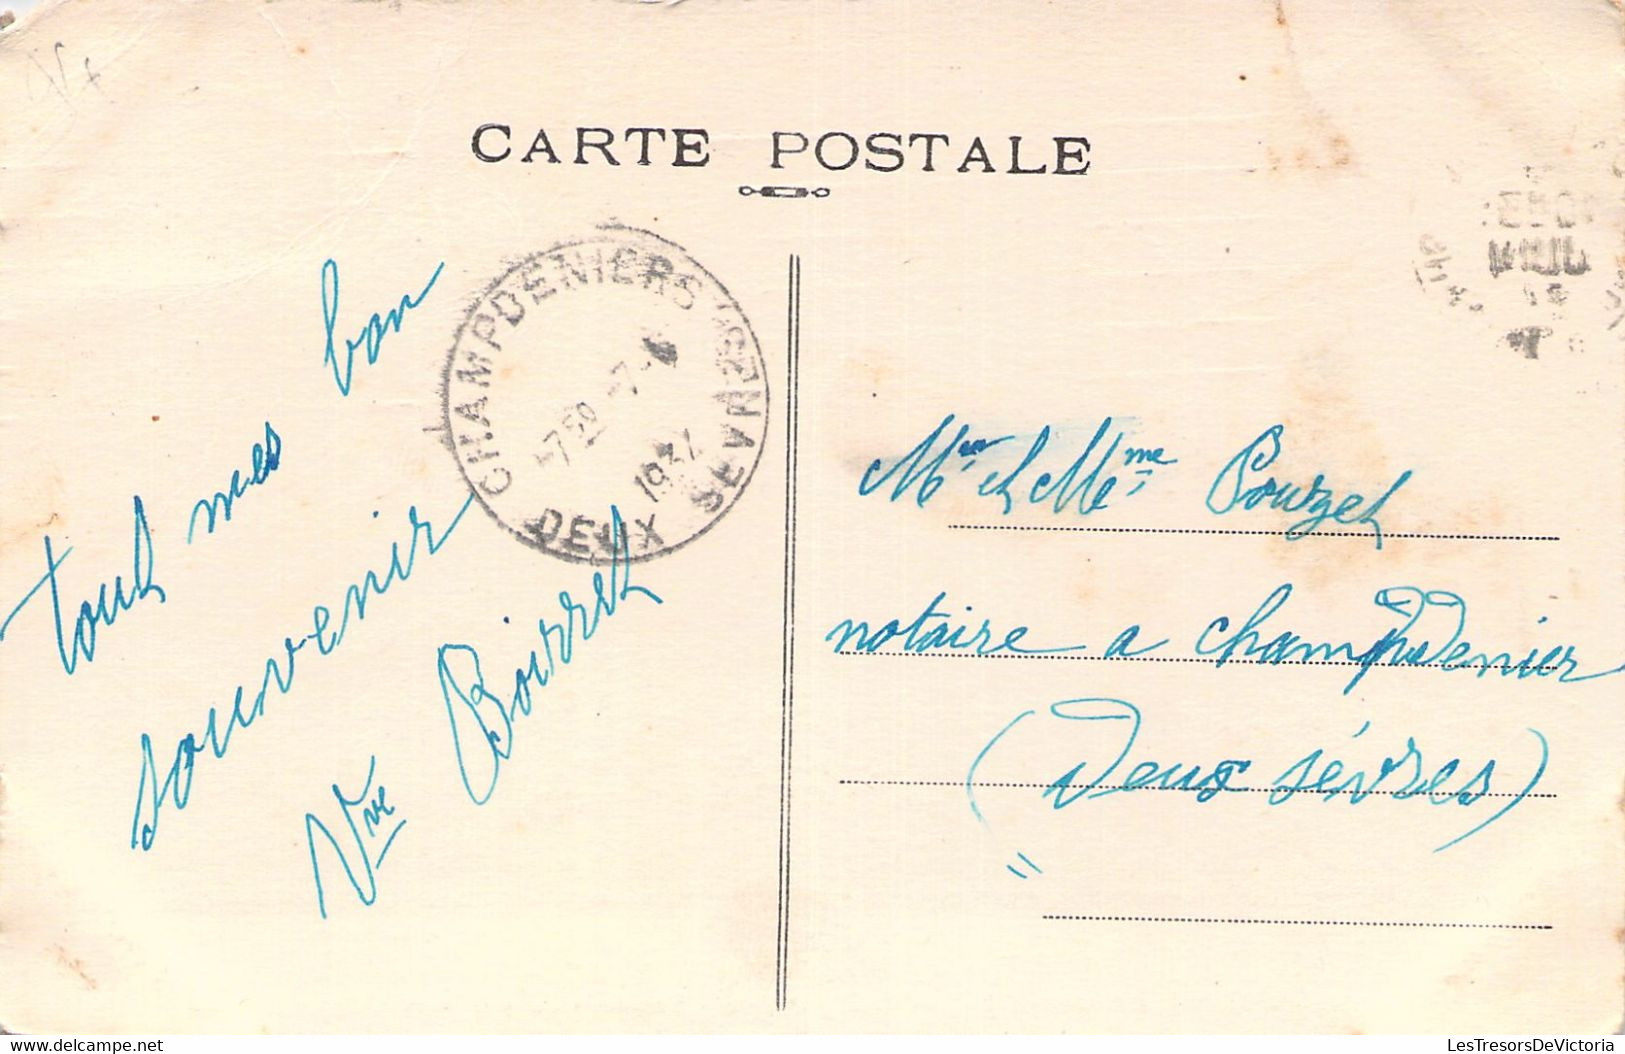 CARTE POSTALE
CHAMPDENIERS
DEUX SEVRES
-7 50 -7-
1937
tout mes bon
souvenir
Vve Boirret
Mr et Mme Pouzet
notaire a champdenier
(Deux sèvres)
LesTresorsDeVictoria.com
LesTresorsDeVictoria